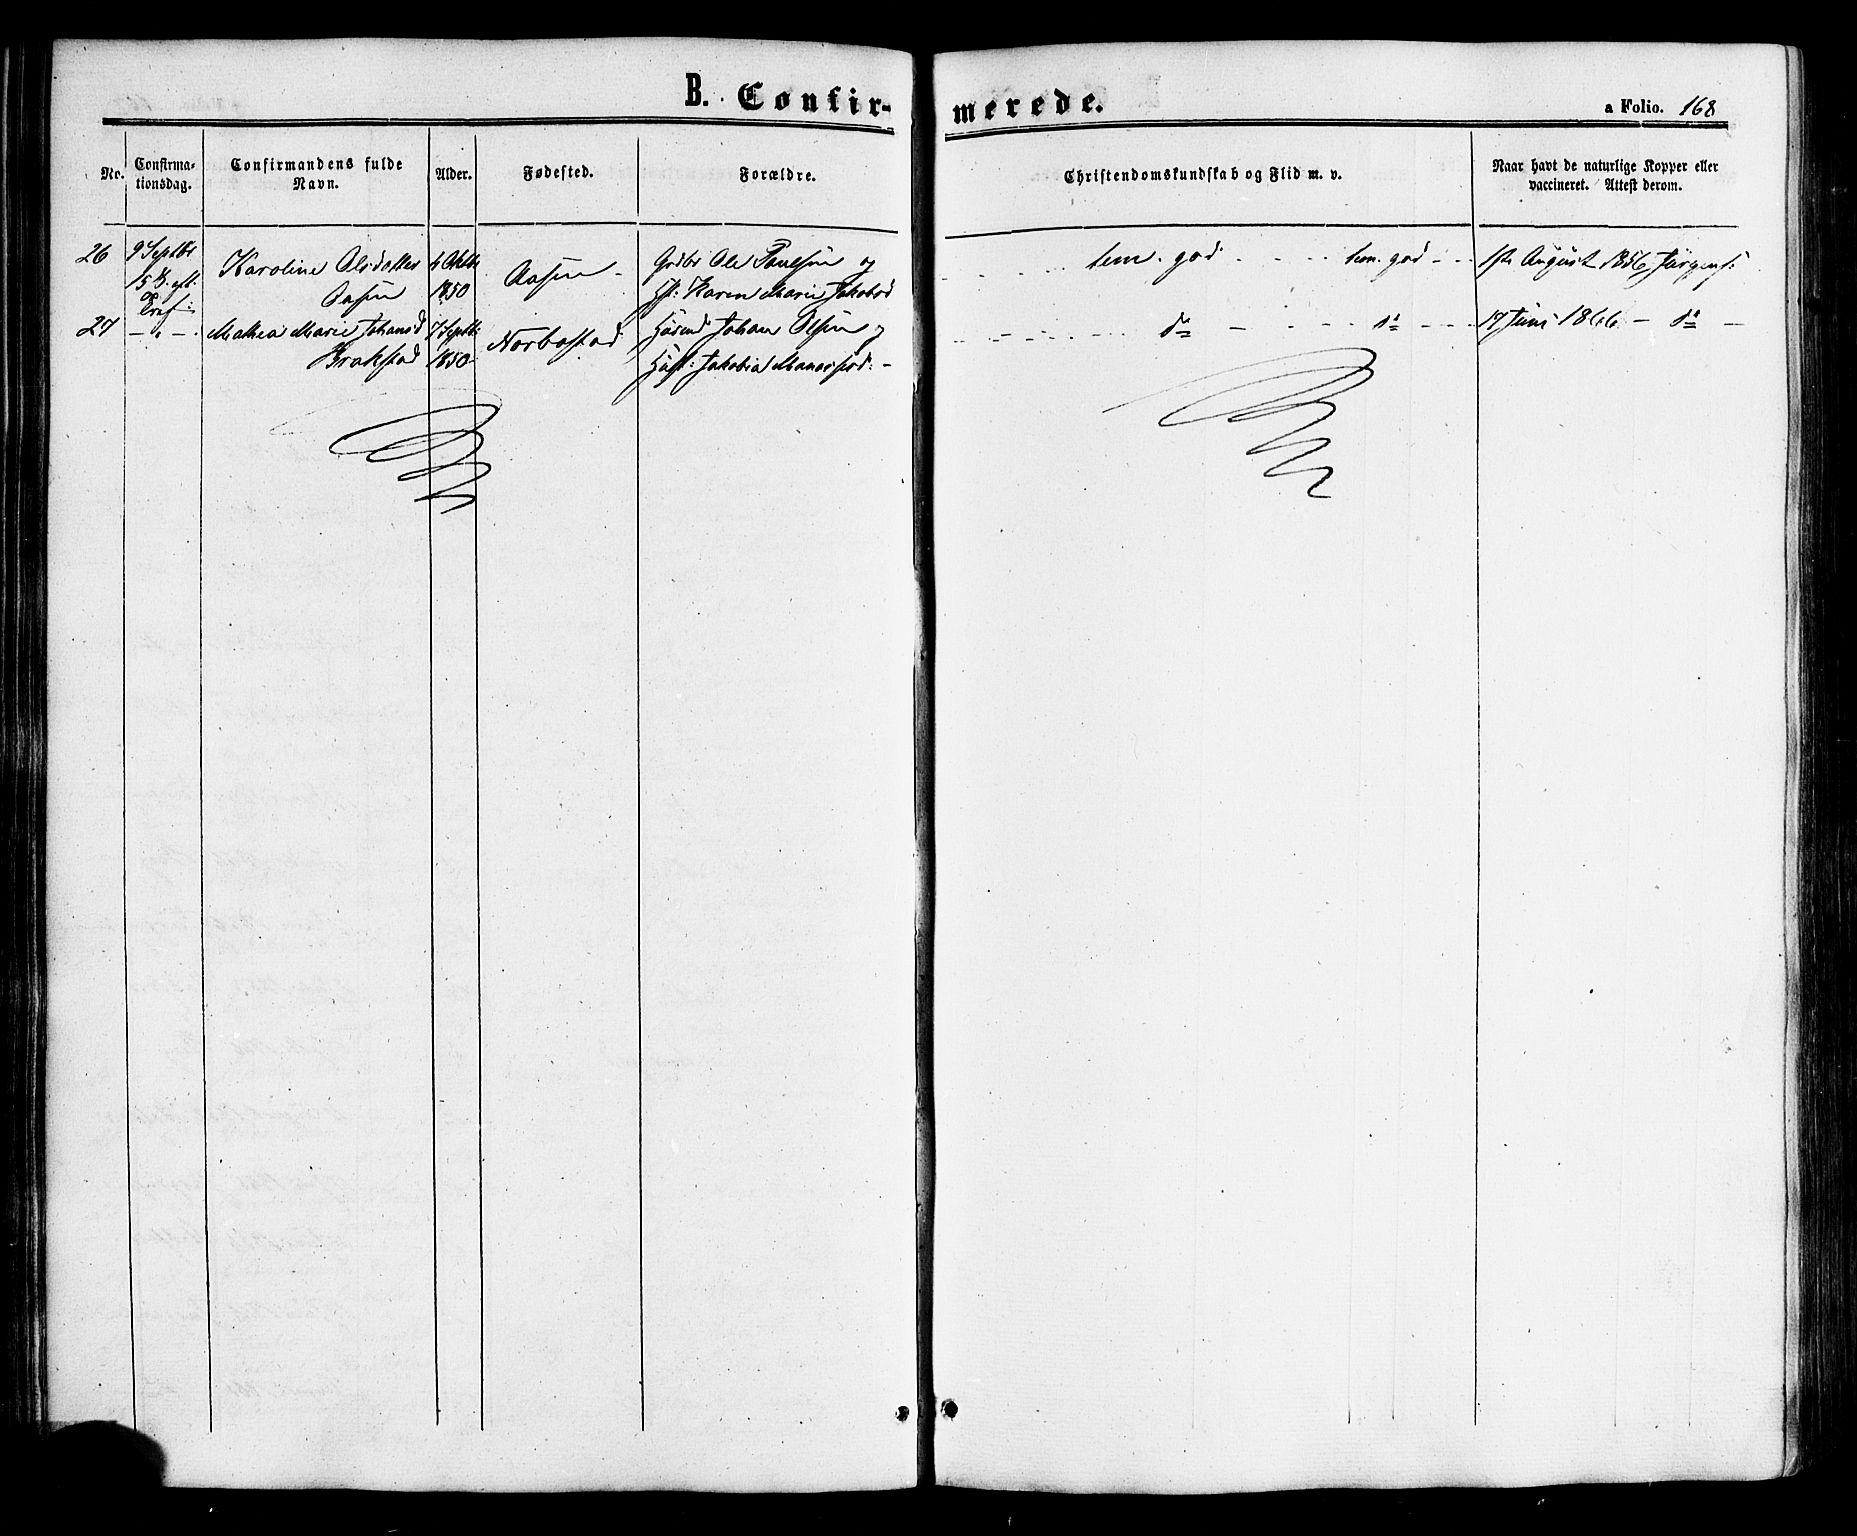 B. Confirmerede.
a Folio. 168
No.
Confirma-
tionsdag.
Confirmandens fulde
Navn.
Alder.
Fødested.
Forældre.
Christendomskundskab og Flid m. v.
Naar havt de naturlige Kopper eller
vaccineret. Attest derom.
26
9 Septbr
15 S. eft:
Karoline Olsdatter
Aasen
6 Oktb:
1850
Aasen -
Grdbr Ole Paulsen og
Hst: Karen Marie Jakobsd
tem. god
tem. god
1ste August 1856 Jørgens:
27
- " -
Mathea Marie Johansd
Brakstad
7 Septb:
1850
Norbostad
Husmd Johan Olsen og
Hust: Jakobia
do
do
17 Juni 1866 - do -